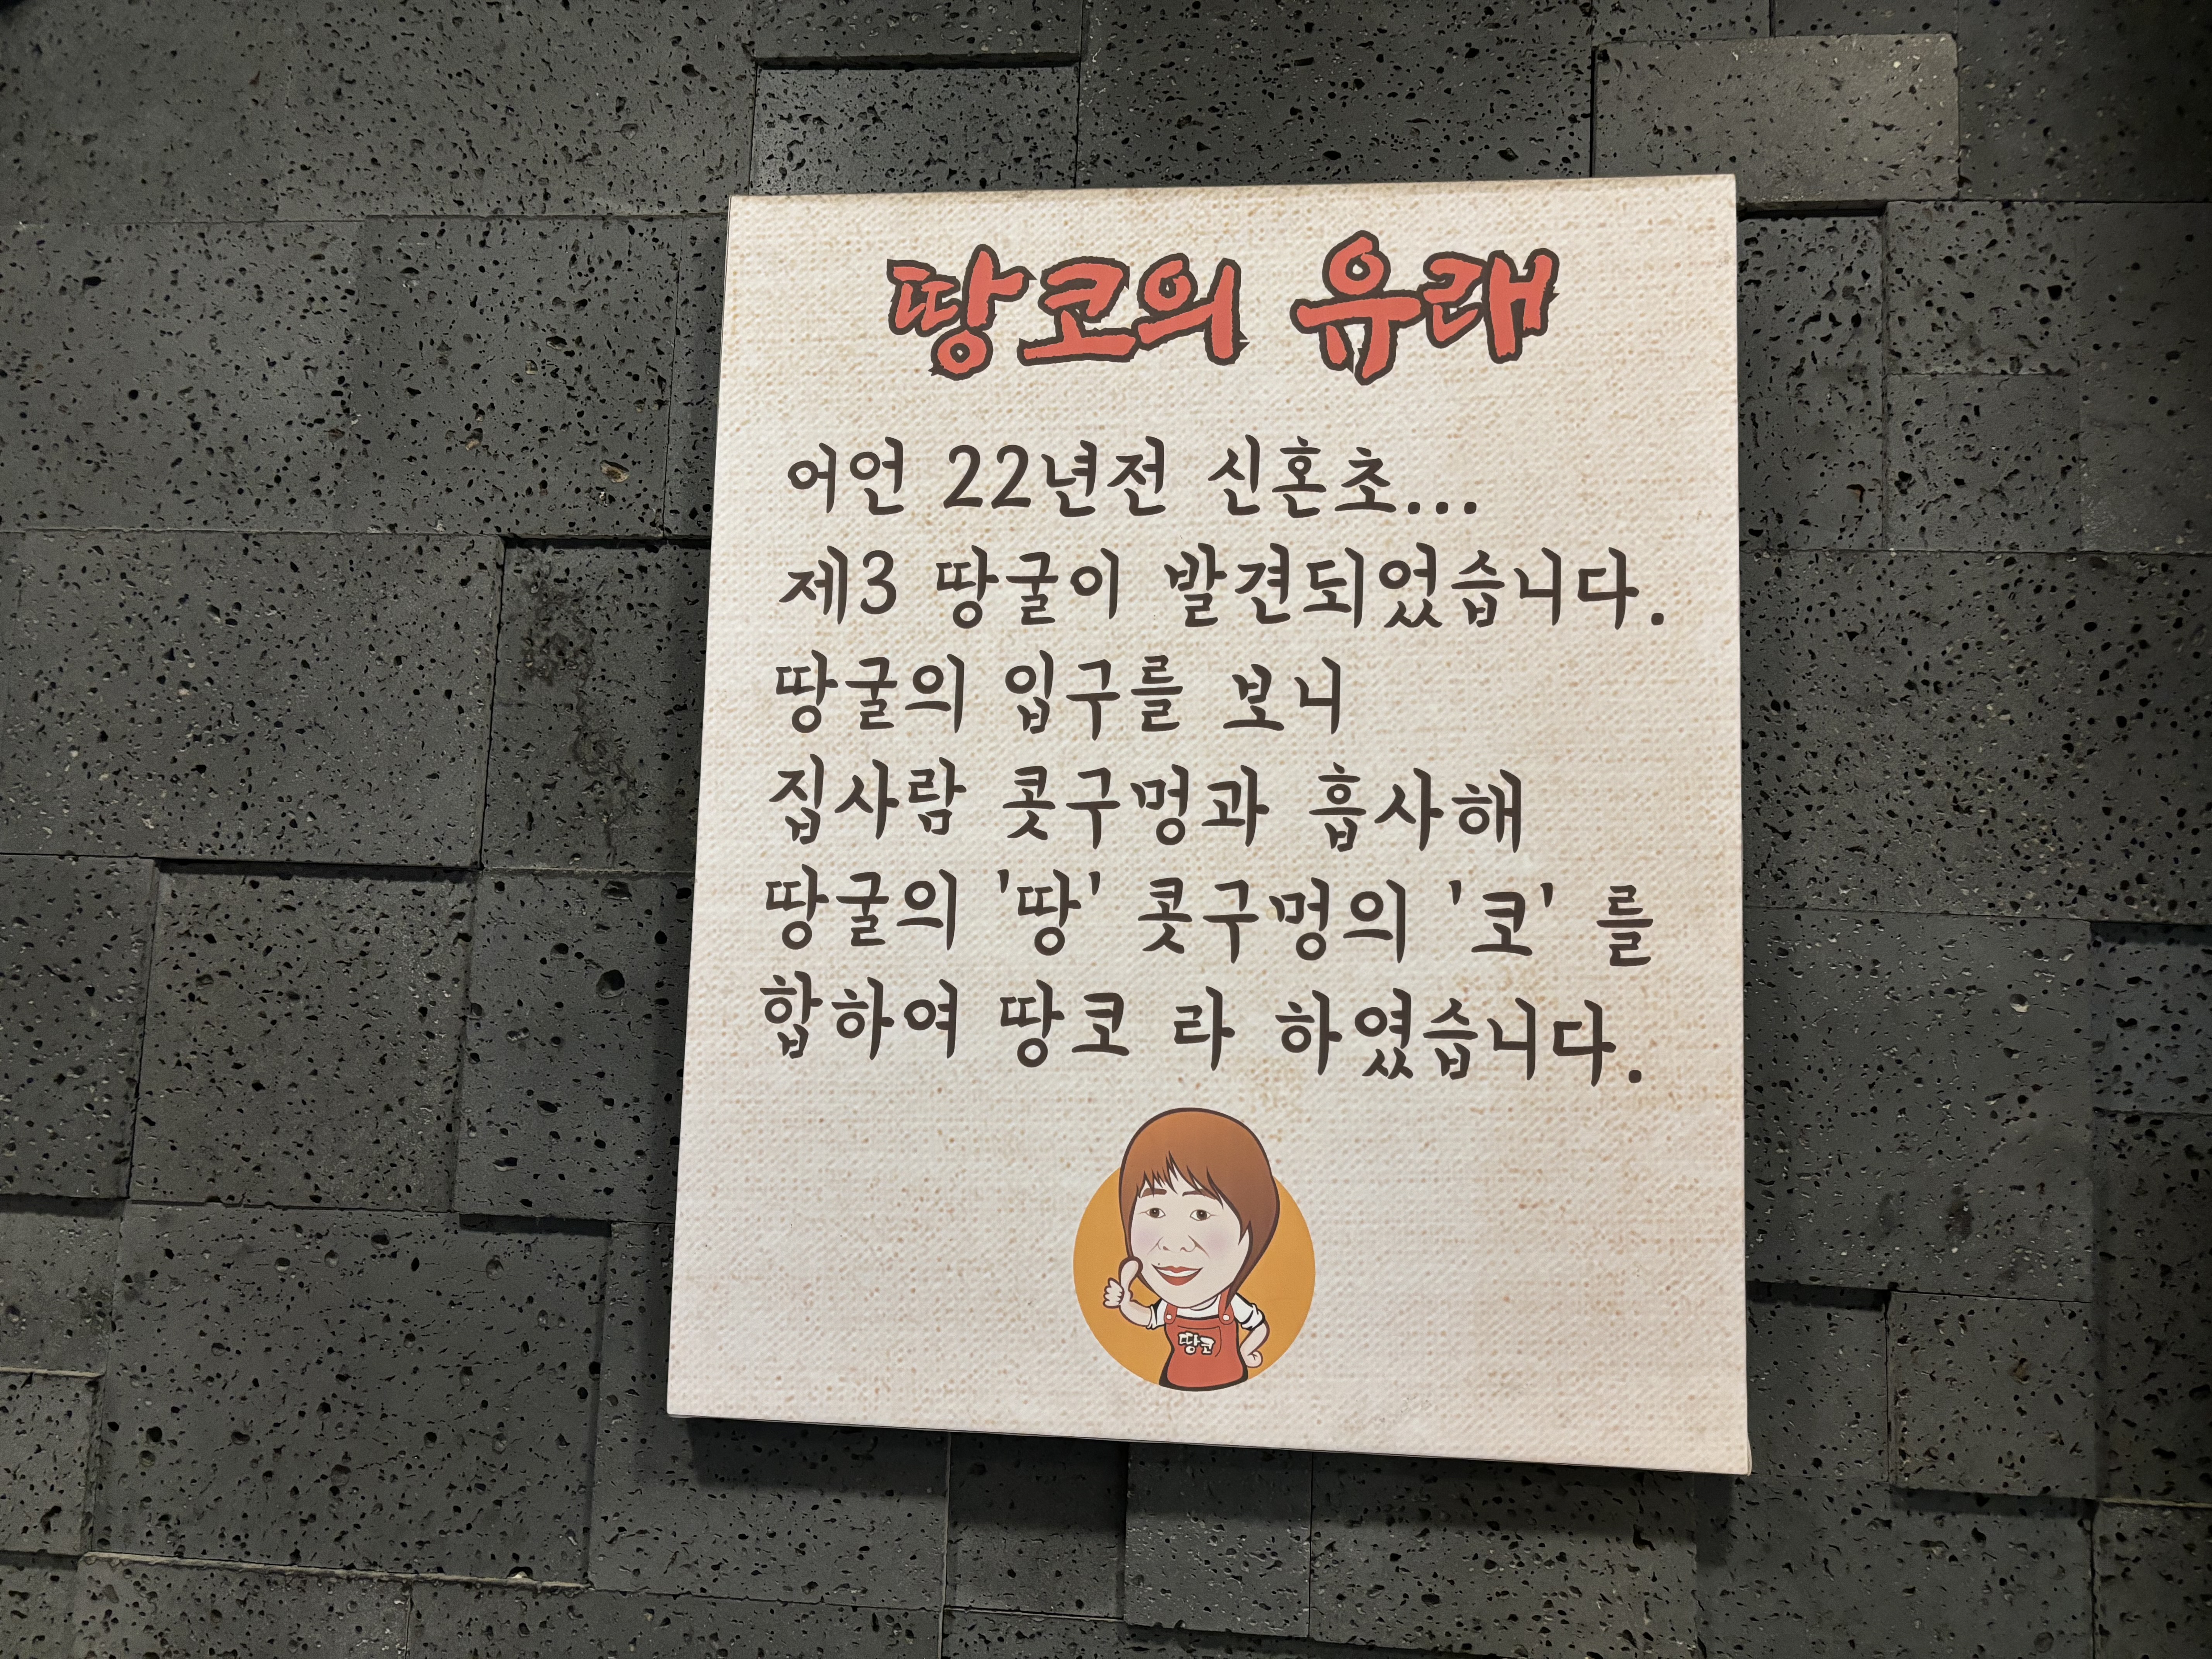 땅코의 유래
어언 22년전 신혼초...
제3 땅굴이 발견되었습니다.
땅굴의 입구를 보니
집사람 콧구멍과 흡사해
땅굴의 '땅' 콧구멍의 '코' 를
합하여 땅코 라 하였습니다.
땅코